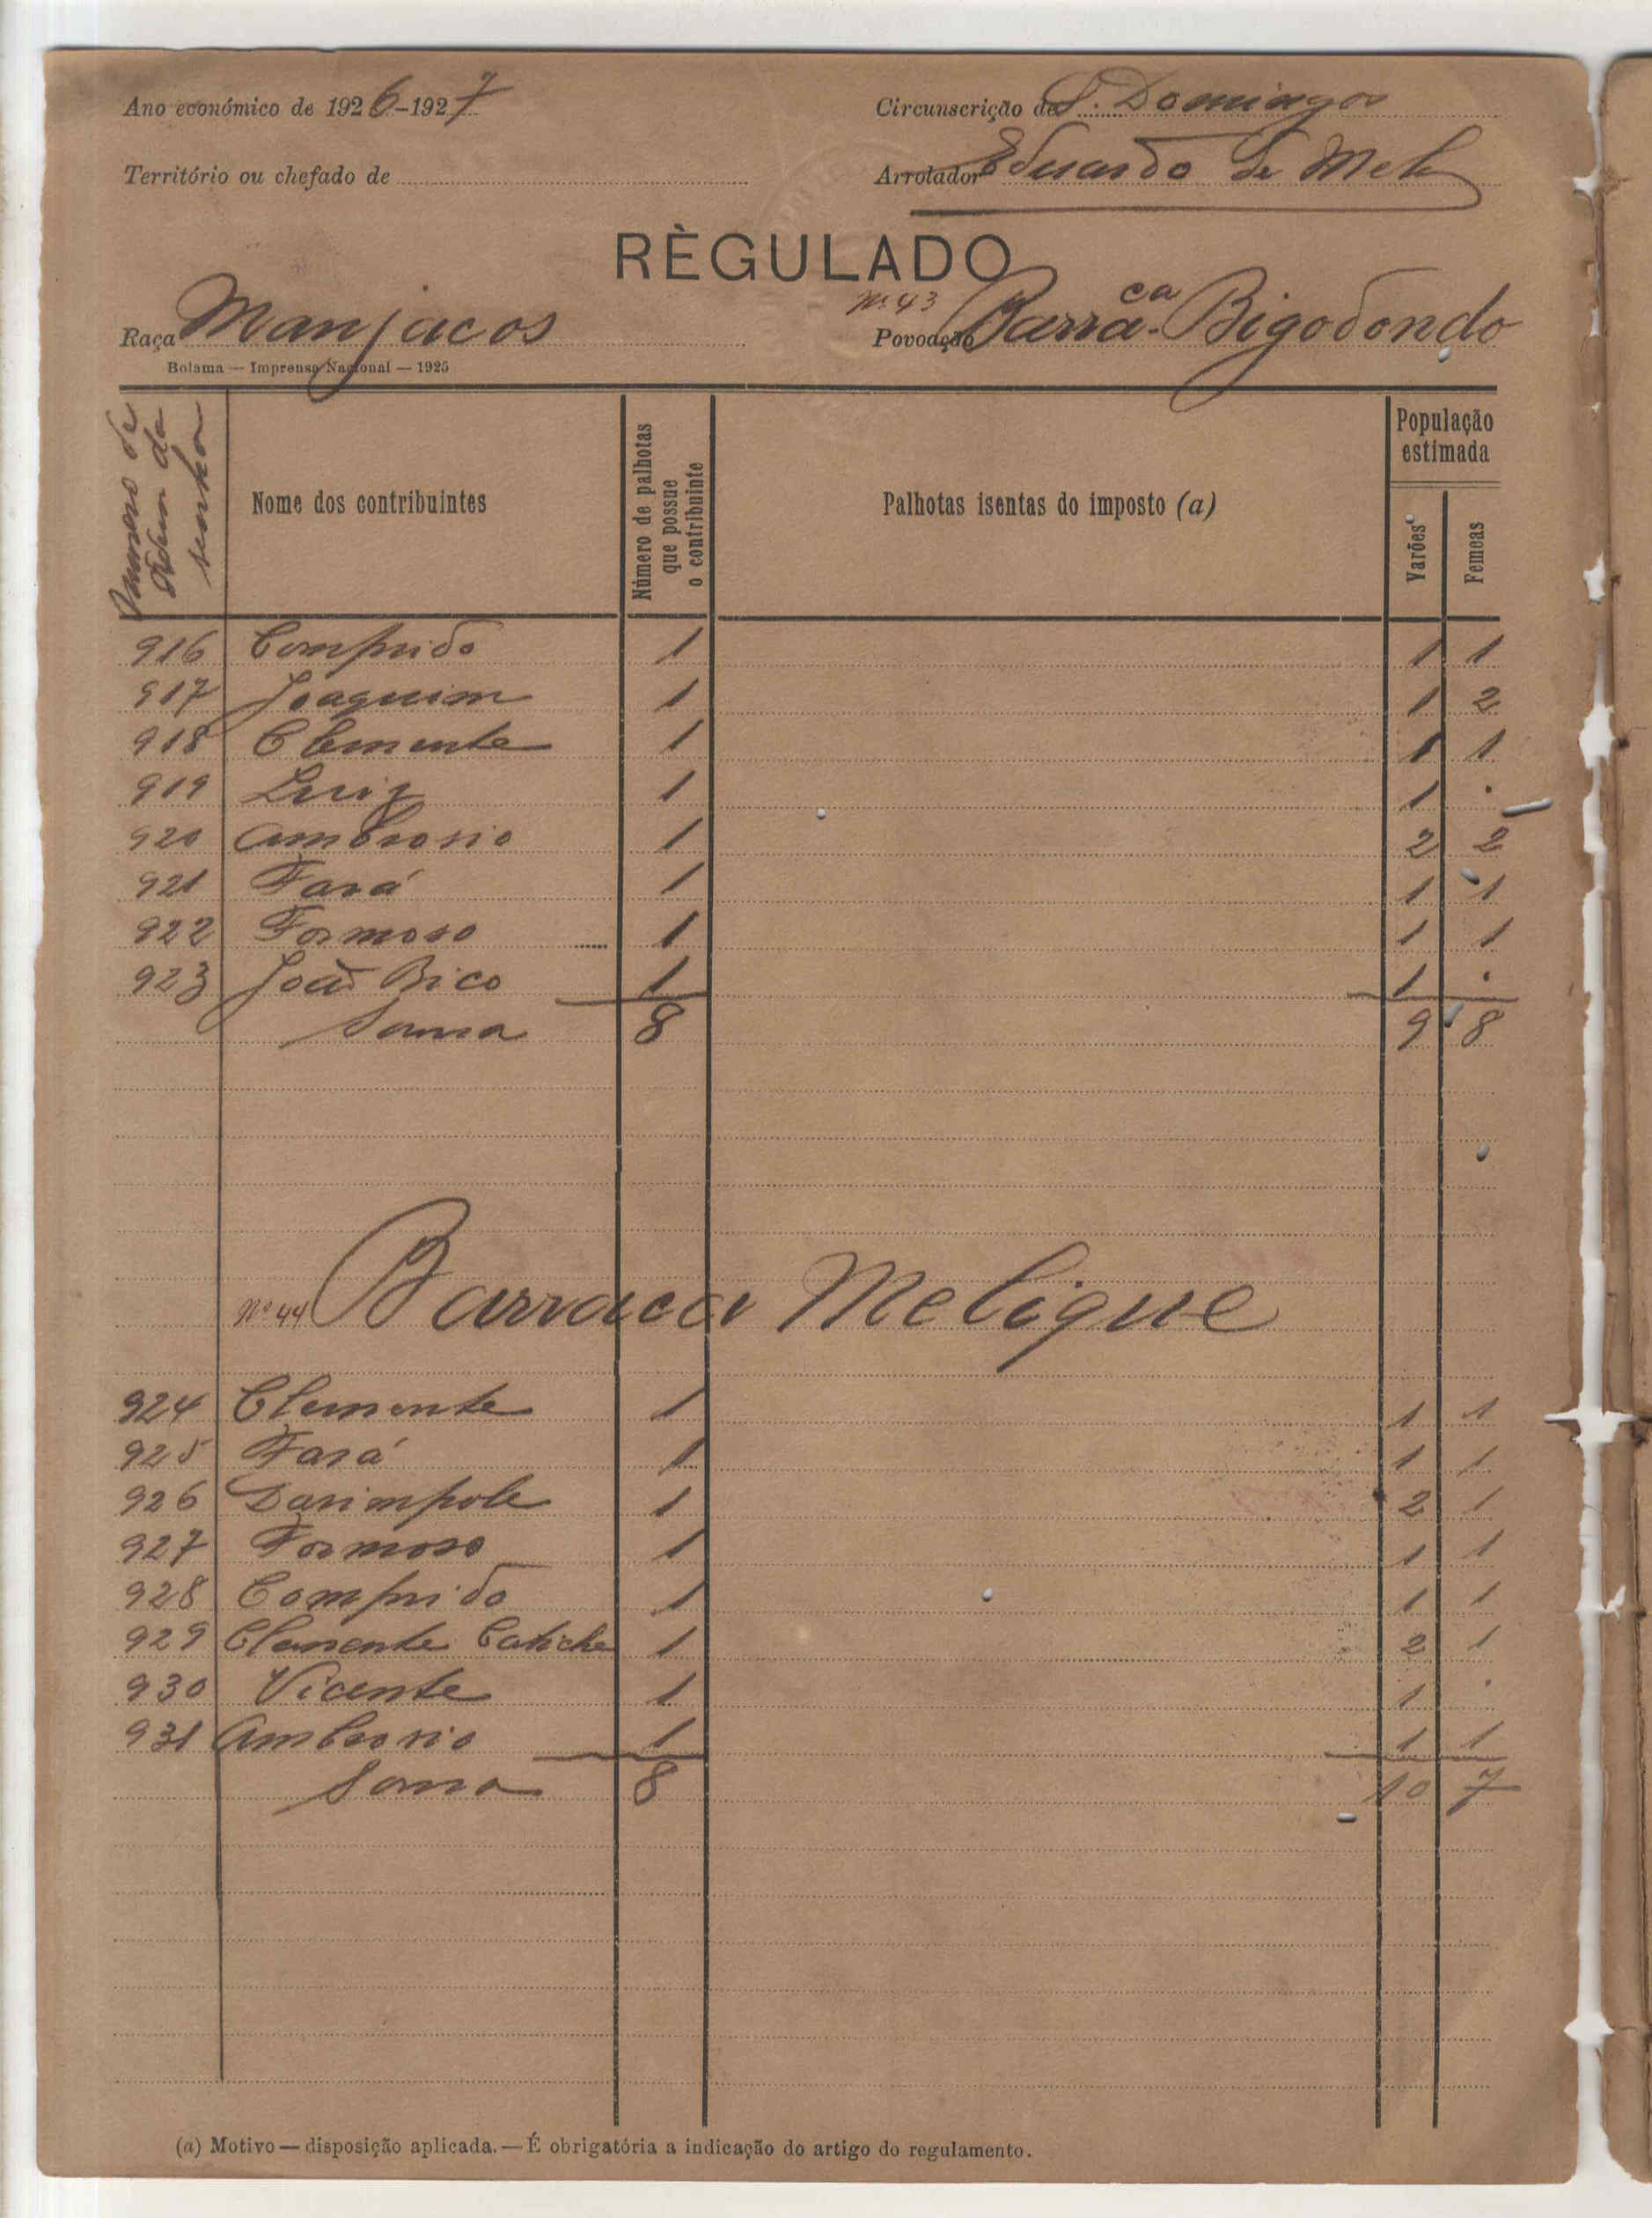 Ano económico de 1926-1927
Circunscrição de S. Domingos
Território ou chefado de
Arrolador Eduardo de Melo
RÈGULADO
Raça Manjacos
Nº 43
Povoação Barra.ca Bigodondo
Bolama — Imprensa Nacional — 1925
Numero de ordem da senha
Nome dos contribuintes
Número de palhotas que possue o contribuinte
Palhotas isentas do imposto (a)
População estimada
Varões
Femeas
916 Comprido 1 1 1
917 Joaquim 1 1 2
918 Clemente 1 1 1
919 Luiz 1 1 .
920 Ambrosio 1 2 2
921 Fará 1 1 1
922 Formoso 1 1 1
923 João Bico 1 1 .
Soma 8 9 8
Nº 44 Barraca Meligue
924 Clemente 1 1 1
925 Fará 1 1 1
926 Darimpole 1 2 1
927 Formoso 1 1 1
928 Comprido 1 1 1
929 Clemente Catiche 1 2 1
930 Vicente 1 1 .
931 Ambrosio 1 1 1
Soma 8 10 7
(a) Motivo — disposição aplicada. — É obrigatória a indicação do artigo do regulamento.